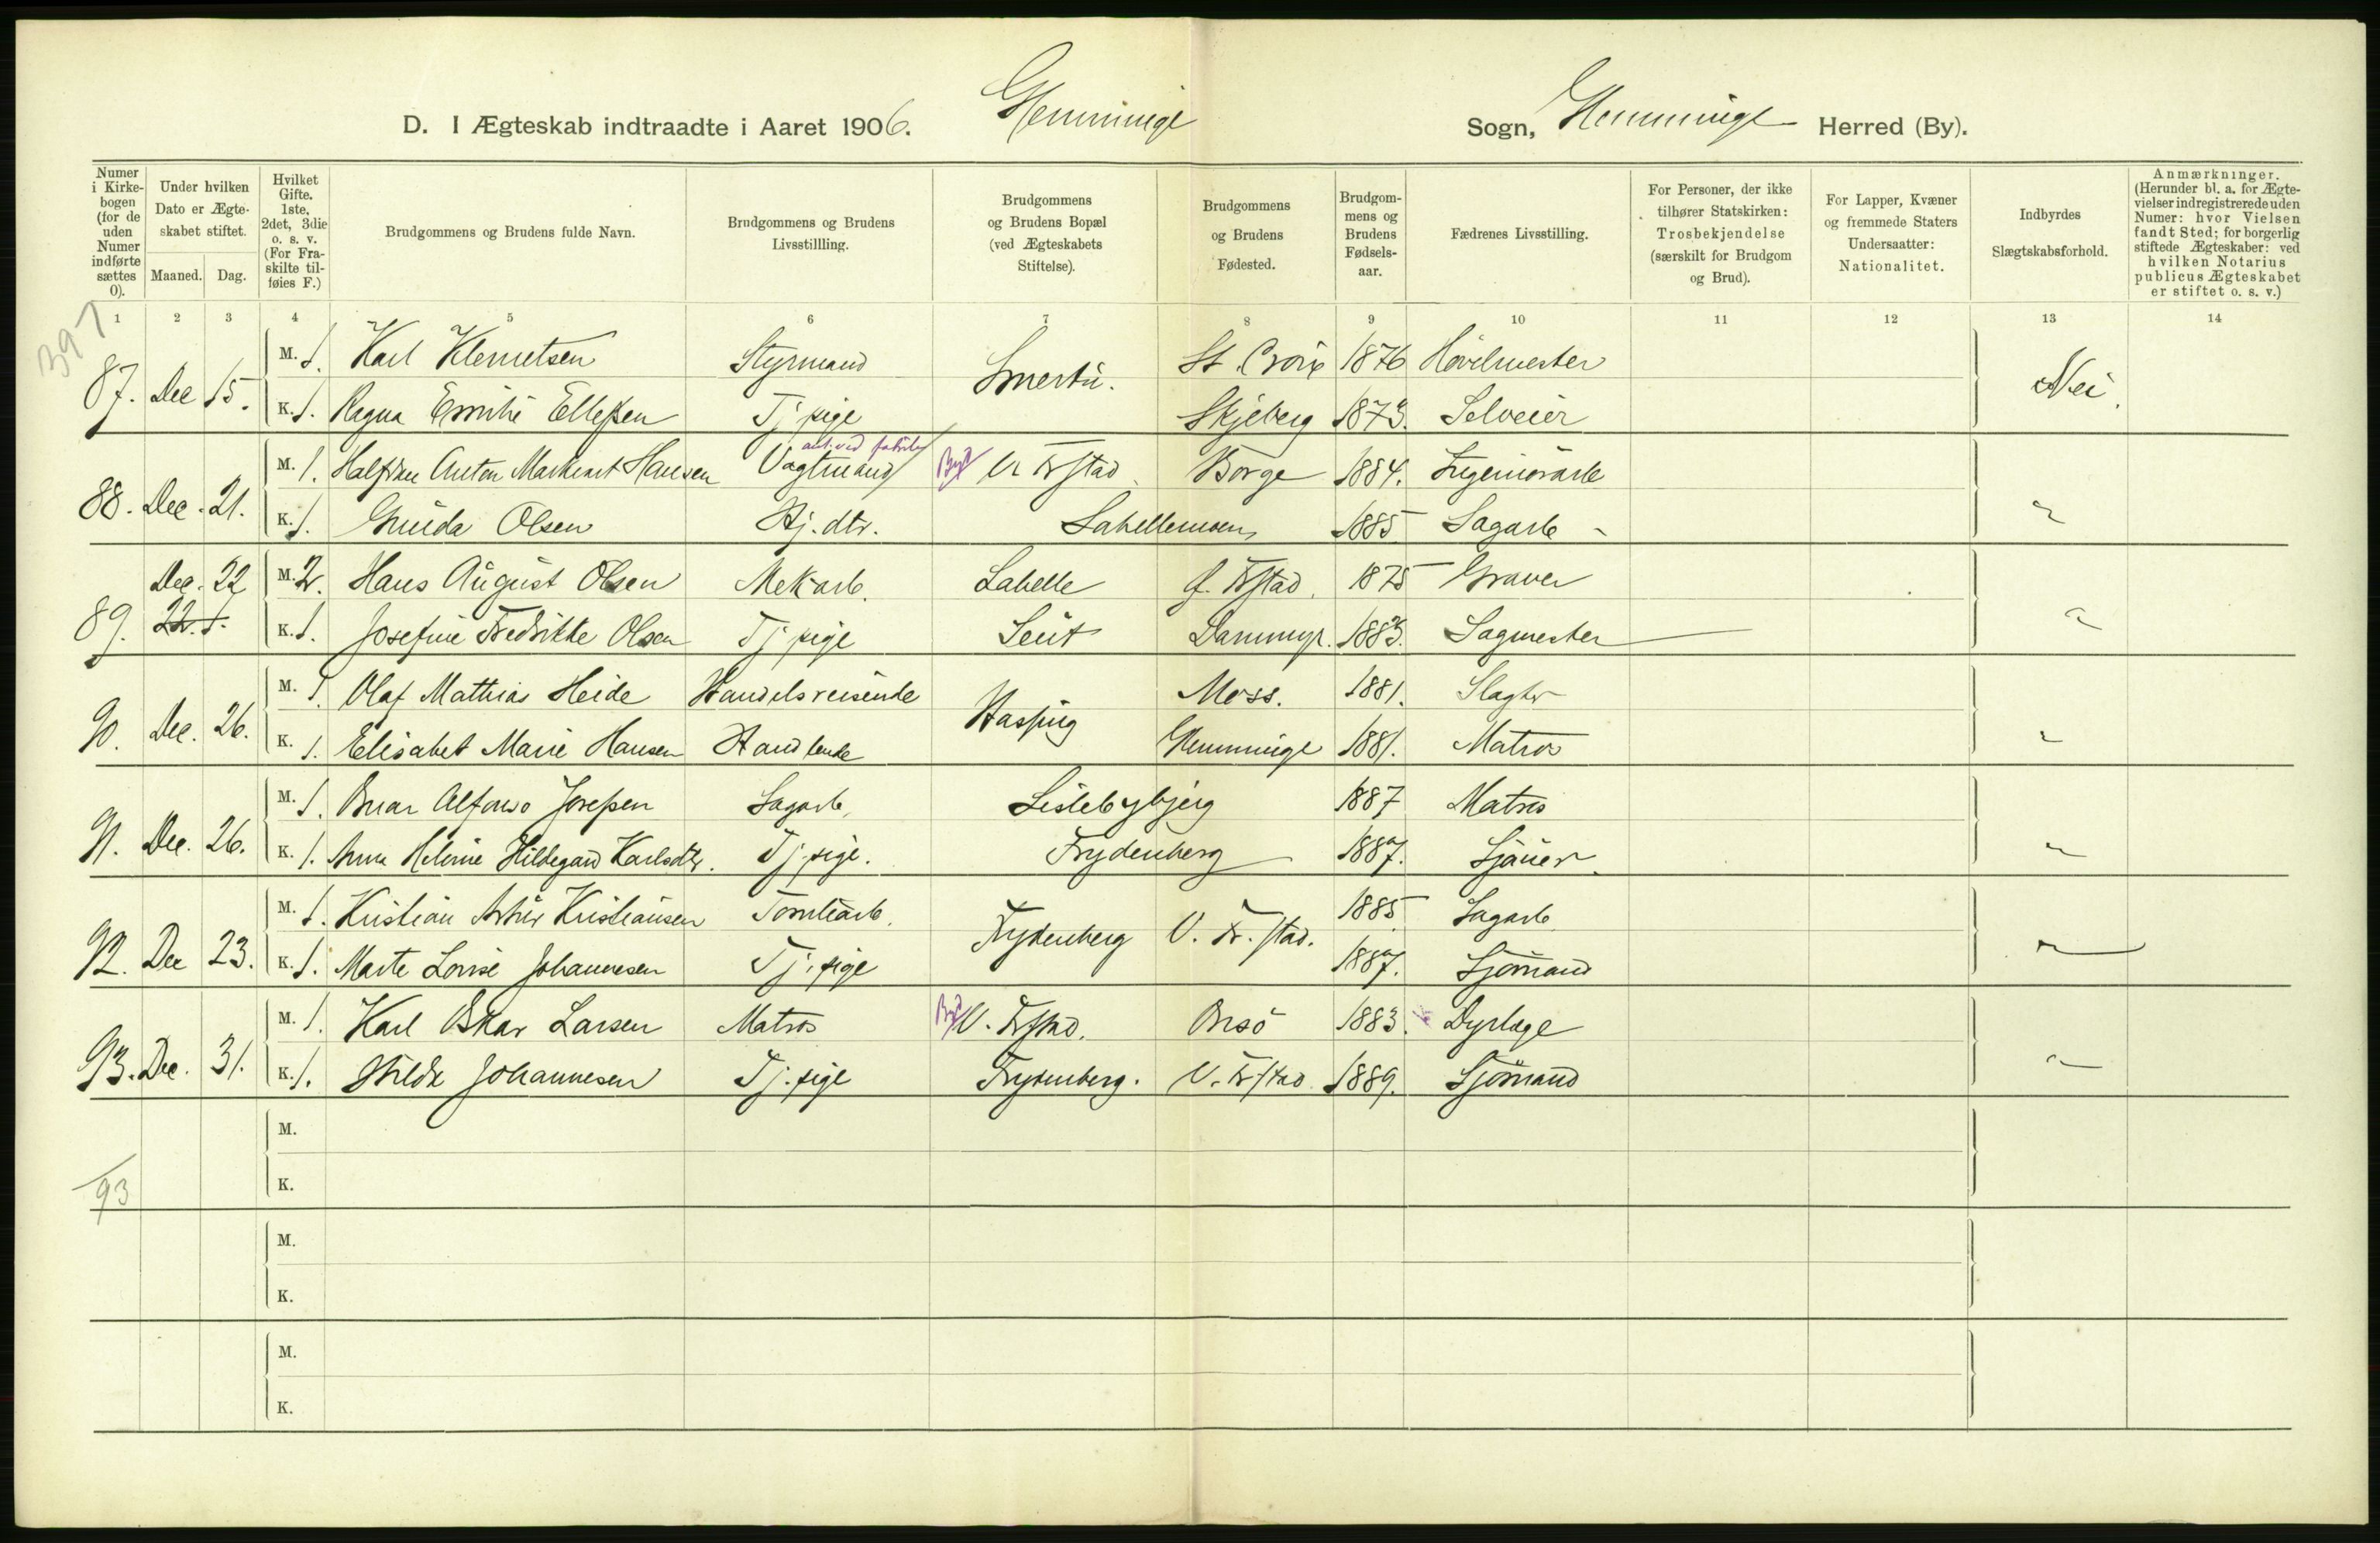 D. I Ægteskab indtraadte i Aaret 1906. Glemminge Sogn, Glemminge Herred (By).
Numer i Kirkebogen (for de uden Numer indførte sættes 0).
Under hvilken Dato er Ægteskabet stiftet.
Maaned. Dag.
Hvilket Gifte. 1ste, 2det, 3die o. s. v. (For Fraskilte tilføies F.)
Brudgommens og Brudens fulde Navn.
Brudgommens og Brudens Livsstillling.
Brudgommens og Brudens Bopæl (ved Ægteskabets Stiftelse).
Brudgommens og Brudens Fødested.
Brudgommens og Brudens Fødselsaar.
Fædrenes Livsstilling.
For Personer, der ikke tilhører Statskirken: Trosbekjendelse (særskilt for Brudgom og Brud).
For Lapper, Kvæner og fremmede Staters Undersaatter: Nationalitet.
Indbyrdes Slægtskabsforhold.
Anmærkninger. (Herunder bl. a. for Ægtevielser indregistrerede uden Numer: hvor Vielsen fandt Sted; for borgerlig stiftede Ægteskaber: ved hvilken Notarius publicus Ægteskabet er stiftet o. s. v.)
1 2 3 4 5 6 7 8 9 10 11 12 13 14
397
87. Dec 15. M. 1. Karl Klemetsen Styrmand Smertu. St. Croix 1876 Høvelmester Nei.
K. 1. Ragna Emilie Ellefsen Tj pige Skjeberg 1873. Selveier
arb. ved fabrik
88. Dec. 21. M. 1. Halfdan Anton Marthinst Hansen Vagtmand By? V Frstad Borge 1884. Ingeniørarb "
K. 1. Gunda Olsen Hj. dtr. Labellemoen 1885 Sagarb "
89. Dec. 22 M. 2. Hans August Olsen Mek arb. Labelle G. Frstad. 1875 Graver "
22. 1. K. 1. Josefine Fredrikke Olsen Tj pige Leiet Dammyr. 1883. Sagmester
90. Dec. 26. M. 1. Olaf Mathias Heide Handelsreisende Hasping Moss. 1881. Slagter "
K. 1. Elisabet Marie Hansen Handlende Glemminge 1881. Matros
91. Dec. 26. M. 1. Einar Alfonso Josefsen Sagarb. Lislebybjerg 1887 Matros "
K. 1. Anna Helenie Hildegard Karlsdtr. Tj. pige. Frydenberg 1887. Sjauer.
92. Dec 23. M. 1. Kristian Artur Kristiansen Tomtearb. Frydenberg V. Fr.stad. 1885 Sagarb. "
K. 1. Marte Lovise Johannesen Tj. pige 1887. Sjømand
93. Dec. 31. M. 1. Karl Oskar Larsen Matros V. Frstad. Onsö 1883. Dyrlæge "
K. 1. Hilda Johannesen Tj. pige Frydenberg. V. Frstad 1889. Sjømand
M.
K.
93
M.
K.
M.
K.